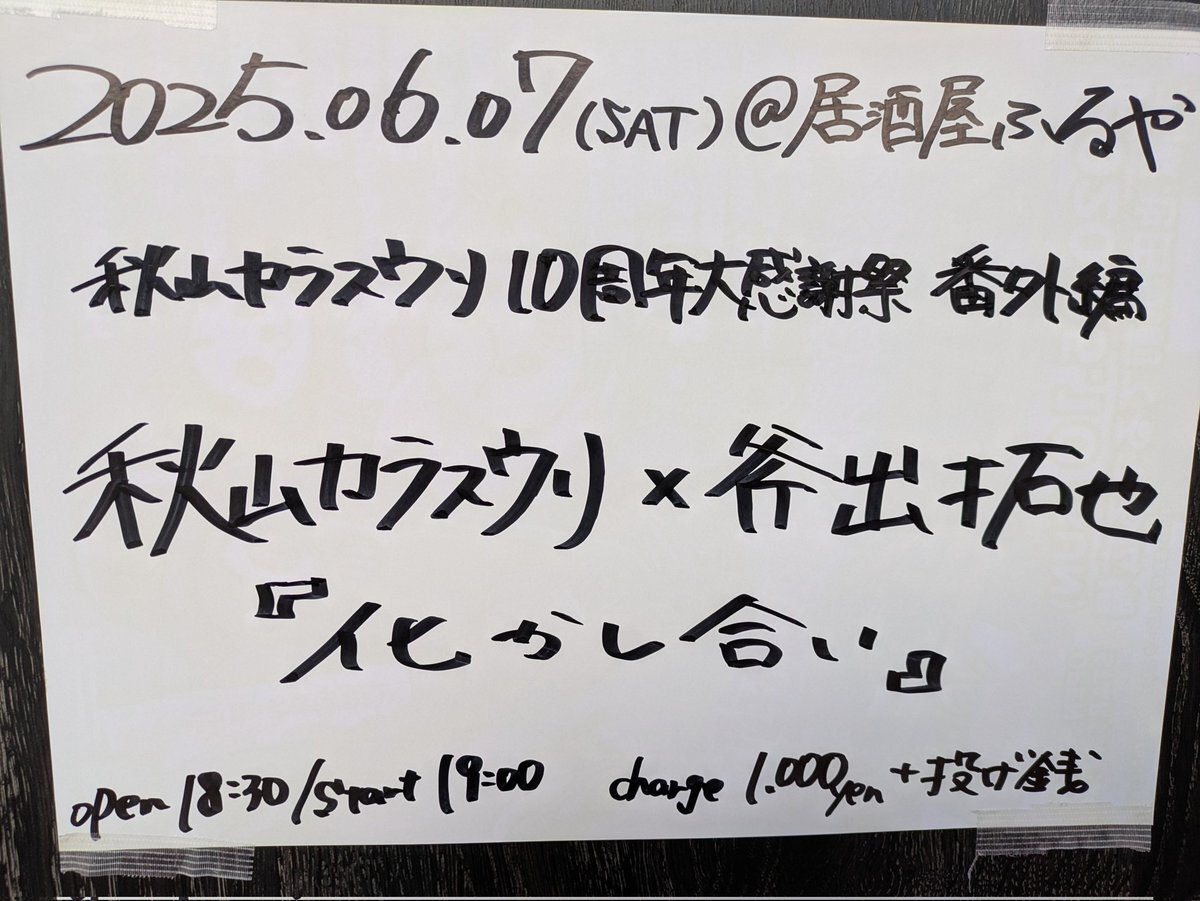 2025.06.07(SAT)@居酒屋ふるや
秋山カラスウリ10周年大感謝祭 番外編
秋山カラスウリ×斧出拓也
『化かし合い』
open 18:30/start 19:00 charge 1.000yen+投げ銭